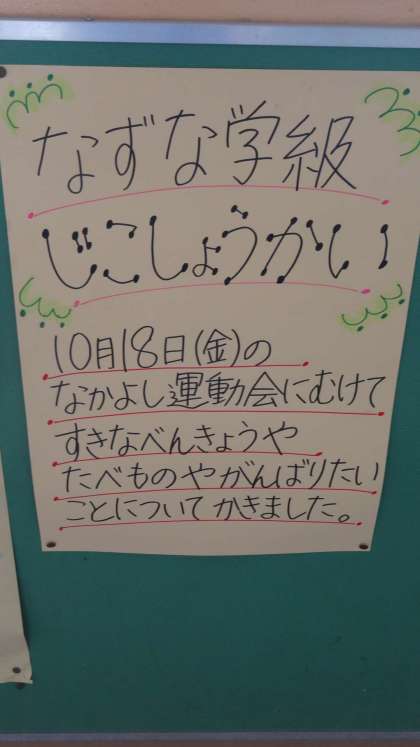 なずな学級
じこしょうかい
10月18日(金)の
なかよし運動会にむけて
すきなべんきょうや
たべものやがんばりたい
ことについてかきました。